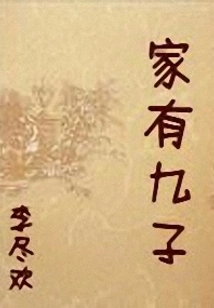 家有九子
李尽欢